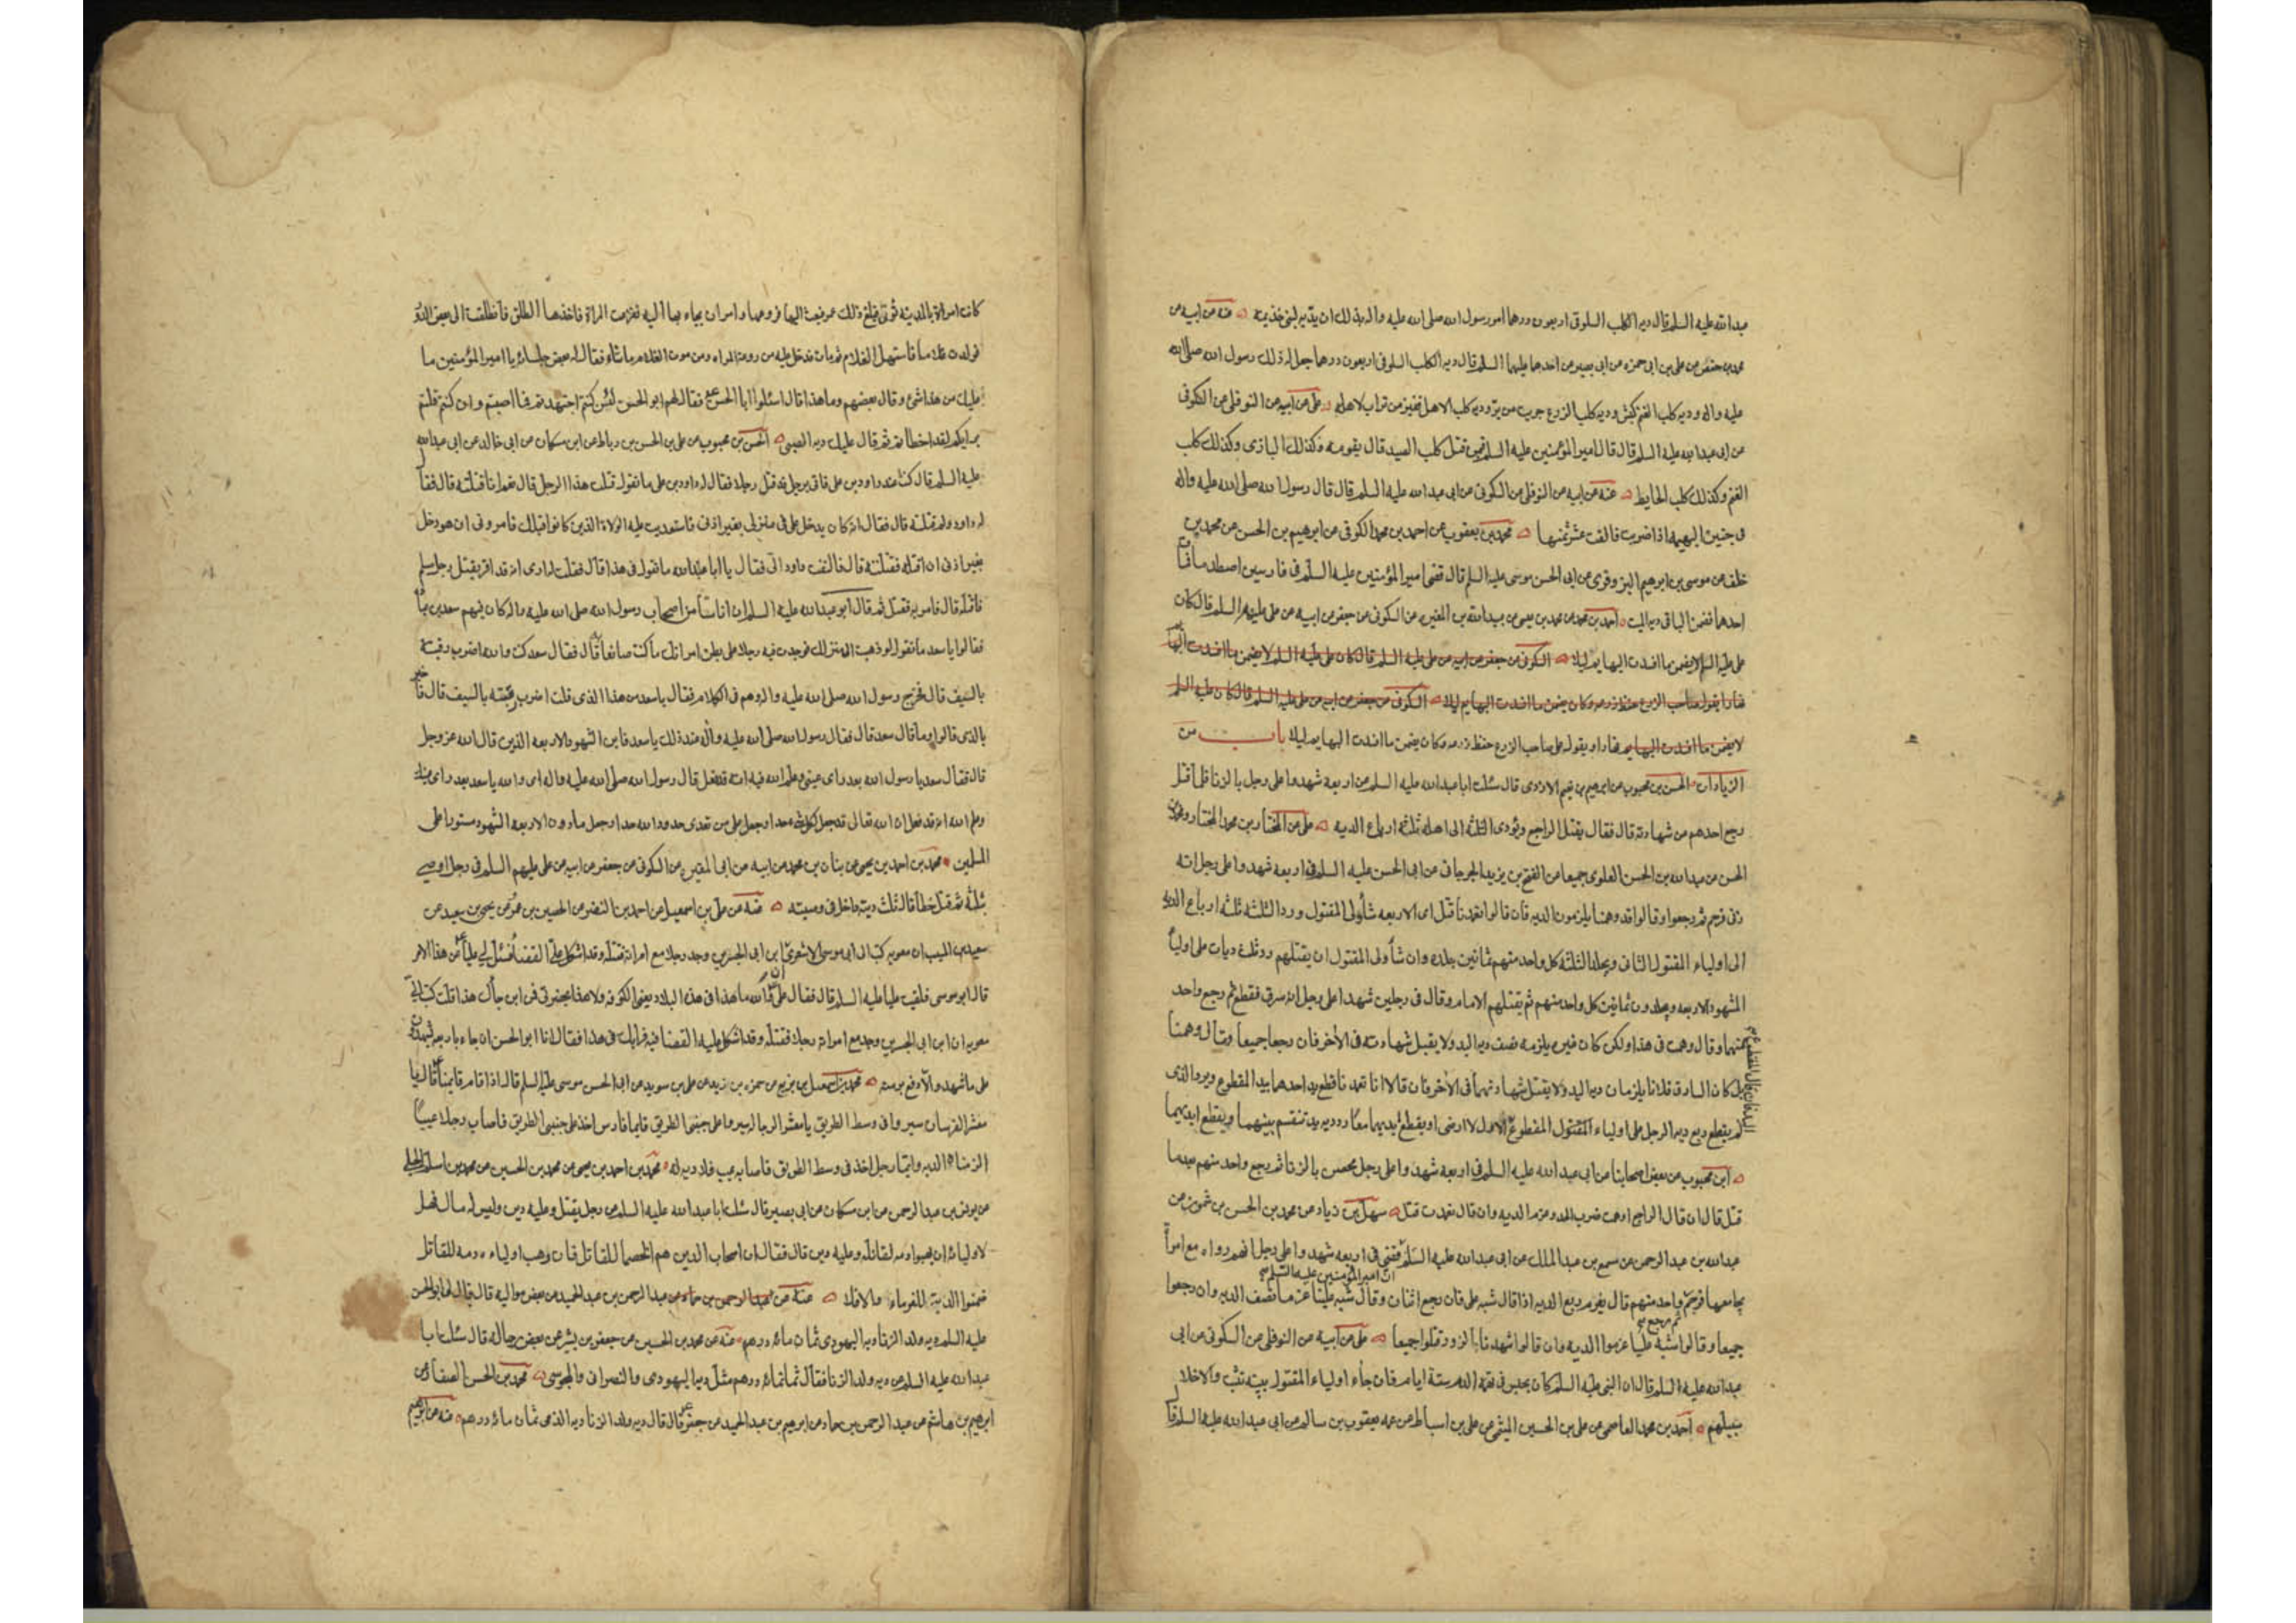 عبدالله عليه السلم قال دية الكلب السلوقى اربعون درهما امر رسول الله صلى الله عليه واله بذلك ان يديه لبنى خذيمة عنه عن ابيه عن
محمد بن حفص عن على بن ابى حمزه عن ابى بصير عن احدهما عليهما السلم قال دية الكلب السلوقى اربعون درهما جعل له ذلك رسول الله صلى الله
عليه واله ودية كلب الغنم كبش ودية كلب الزرع جريب من بر ودية كلب الاهل قفيز من تراب لاهله على عن ابيه عن النوفلى عن السكونى
عن ابى عبدالله عليه السلم قال قال امير المؤمنين عليه السلم فيمن قتل كلب الصيد قال يقومه وكذلك البازى وكذلك كلب
الغنم وكذلك كلب الحايط عنه عن ابيه عن النوفلى عن السكونى عن ابى عبد الله عليه السلم قال قال رسول الله صلى الله عليه واله
فى جنين البهيمه اذا ضربت فالقت عشر ثمنها محمد بن يعقوب عن احمد بن محمد الكوفى عن ابرهيم بن الحسن عن محمد بن
خلف عن موسى بن ابرهيم البزوفرى عن ابى الحسن موسى عليه السلم قال قضى امير المؤمنين عليه السلم فى فارسين اصطدما فمات
احدهما فضمن الباقى دية الميت احمد بن محمد عن محمد بن عيسى عن عبدالله بن المغيره عن السكونى عن جعفر عن ابيه عن على عليهم السلم قال كان
على عليه السلم لا يضمن ما افسدت البهايم ليلا السكونى عن جعفر عن ابيه عن على عليه السلم قال كان على عليه السلم لا يضمن ما افسدت البهايم
نهارا يقول صاحب الزرع حفظ زرعه وكان يضمن ما افسدت البهايم ليلا السكونى عن جعفر عن ابيه عن على عليه السلم قال كان عليه السلم
لا يضمن ما افسدت البهايم نهارا ويقول على صاحب الزرع حفظ زرعه وكان يضمن ما افسدت البهايم ليلا باب من
الزيادات الحسن بن محبوب عن ابرهيم بن نعيم الازدى قال سئلت ابا عبدالله عليه السلم عن اربعه شهدوا على رجل بالزنا فلما قتل
رجع احدهم عن شهادته قال فقال يقتل الراجع ويؤدى الثلثة الى اهله ثلثه ارباع الديه على عن المختار بن محمد المختار ومحمد بن
الحسن عن عبدالله بن الحسن العلوى جميعا عن الفتح بن يزيد الجرجانى عن ابى الحسن عليه السلم فى اربعه شهدوا على رجل انه
زنى فرجم ثم رجعوا وقالوا قد وهمنا يلزمون الديه فان قالوا تعمدنا قتل اى الاربعه شاء ولى المقتول ورد الثلثه ثلثه ارباع الديه
الى اولياء المقتول الثانى ويجلد الثلثه كل واحد منهم ثمانين جلده وان شاء ولى المقتول ان يقتلهم رد ثلث ديات على اولياء
الشهود الاربعه ويجلدون ثمانين كل واحد منهم ثم يقتلهم الامام وقال فى رجلين شهدا على رجل انه سرق فقطع ثم رجع واحد
منهما وقال وهمت فى هذا ولكن كان غيره يلزمه نصف دية اليد ولا يقبل شهادته فى الاخر فان رجعا جميعا وقال وهمنا
بل كان السارق فلانا يلزمان دية اليد ولا يقبل شهادتهما فى الاخر فان قالا انا تعمدنا قطع يد احدهما بيد المقطوع ويرد الذى
لم يقطع ربع دية الرجل على اولياء المقطوع الاول لا ارضى او يقطع ايديهما معا رد دية يد تنقسم بينهما ويقطع ايديهما
ابن محبوب عن بعض اصحابنا عن ابى عبد الله عليه السلم فى اربعه شهدوا على رجل محصن بالزنا ثم رجع واحد منهم بعدما
قتل قال ان قال الراجع اوهمت ضرب الحد وغرم الديه وان قال تعمدت قتل سهل بن زياد عن محمد بن الحسن بن شمون عن
عبدالله بن عبد الرحمن عن مسمع بن عبد الملك عن ابى عبدالله عليه السلم قضى فى اربعه شهدوا على رجل انهم راوه مع امراة
ان امير المؤمنين عليه السلم
يجامعها فرجم ثم رجع واحد منهم قال يغرم ربع الديه اذا قال شبه على فان رجع اثنان وقالا شبه علينا غرما نصف الديه وان رجعوا
جميعا وقالوا شبه علينا غرموا الديه وان قالوا شهدنا بالزور قتلوا جميعا على عن ابيه عن النوفلى عن السكونى عن ابى
عبدالله عليه السلم قال ان النبى عليه السلم كان يحبس فى تهمة الدم ستة ايام فان جاء اولياء المقتول ببينه تثبت والا خلا
سبيلهم احمد بن محمد العاصمى عن على بن الحسين الميثمى عن على بن اسباط عن عمه يعقوب بن سالم عن ابى عبدالله عليه السلم قال
كانت امراة بالمدينه تؤتى فبلغ ذلك عمر فبعث اليها فروعها وامر ان يجاء بها اليه ففزعت المراة فاخذها الطلق فانطلقت الى بعض الدور
فولدت غلاما فاستهل الغلام ثم مات فدخل عليه من روعة المراه ومن موت الغلام ما شاء الله فقال له بعض جلسائه يا امير المؤمنين ما
عليك من هذا شئ وقال بعضهم وما هذا قال اسئلوا ابا الحسن فقال لهم ابو الحسن لئن كنتم اجتهدتم فما اصبتم وان كنتم قلتم
برايكم لقد اخطاتم ثم قال عليك دية الصبى الحسن بن محبوب عن على بن الحسن بن رباط عن ابن مسكان عن ابى خالد عن ابى عبدالله
عليه السلم قال كنت عند داود بن على فاتى برجل قد قتل رجلا فقال له داود بن على ما تقول قتلت هذا الرجل قال نعم انا قتلته قال فقال
له داود ولم قتلته قال فقال انه كان يدخل على فى منزلى بغير اذنى فاستعديت عليه الولاة الذين كانوا قبلك فامرونى ان هو دخل
بغير اذنى ان اقتله فقتلته قال فالتفت داود الى فقال يا ابا عبدالله ما تقول فى هذا قال فقلت له ارى انه قد اقر بقتل رجل مسلم
فاقتله قال فامر به فقتل ثم قال ابو عبدالله عليه السلم ان اناسا من اصحاب رسول الله صلى الله عليه واله كان فيهم سعد بن عبادة
فقالوا يا سعد ما تقول لو ذهبت الى منزلك فوجدت فيه رجلا على بطن امراتك ما كنت صانعا قال فقال سعد كنت والله اضرب رقبته
بالسيف قال فخرج رسول الله صلى الله عليه واله وهم فى الكلام فقال يا سعد من هذا الذى قلت اضرب رقبته بالسيف قال فاخبر
بالذى قالوا وما قال سعد قال فقال رسول الله صلى الله عليه واله عند ذلك يا سعد فاين الشهود الاربعه الذين قال الله عز وجل
قال فقال سعد يا رسول الله بعد راى عينى وعلم الله فيه انه قد فعل قال رسول الله صلى الله عليه واله اى والله يا سعد بعد راى عينك
وعلم الله انه قد فعل ان الله تعالى قد جعل لكل شئ حدا وجعل على من تعدى حدود الله حدا وجعل ما دون الاربعه الشهود مستورا على
المسلمين محمد بن احمد بن يحيى عن بنان بن محمد عن ابيه عن ابن المغيره عن السكونى عن جعفر عن ابيه عن على عليهم السلم فى رجل اوصى
بثلثه ثم قتل خطا قال ثلث ديته داخل فى وصيته عنه عن على بن اسمعيل عن احمد بن النضر عن الحسين بن عمرو عن يحيى بن سعيد عن
سعيد بن المسيب ان معويه كتب الى ابى موسى الاشعرى ان ابن ابى الجسرين وجد رجلا مع امراته فقتله وقد اشكل على القضا فسئل لى عليا عن هذا الامر
قال ابو موسى فلقيت عليا عليه السلم قال فقال على والله ما هذا فى هذه البلاد يعنى الكوفه ولا هذا بحضرتى فمن اين جاءك هذا قلت كتب الى
معويه ان ابن ابى الجسرين وجد مع امراته رجلا فقتله وقد اشكل عليه القضا فيه فرايك فى هذا فقال انا ابو الحسن ان جاء باربعه يشهدون
على ما شهد والا دفع برمته محمد بن اسمعيل بن بزيع عن حمزه بن زيد عن على بن سويد عن ابى الحسن موسى عليه السلم قال اذا قام قايمنا قال يا
معشر الفرسان سيروا فى وسط الطريق يا معشر الرجاله سيروا على جنبى الطريق فايما فارس اخذ على جنبى الطريق فاصاب رجلا عيب
الزمناه الديه وايما رجل اخذ فى وسط الطريق فاصابه عيب فلا دية له محمد بن احمد بن يحيى عن محمد بن الحسين عن محمد بن اسلم الجبلى
عن يونس بن عبد الرحمن عن ابن مسكان عن ابى بصير قال سئلت ابا عبدالله عليه السلم عن رجل يقتل وعليه دين وليس له مال فهل
لاوليائه ان يهبوا دمه لقاتله وعليه دين قال فقال ان اصحاب الدين هم الخصماء للقاتل فان وهب اولياءه دمه للقاتل
ضمنوا الدية للغرماء والا فلا عنه عن عبد الرحمن بن حماد عن عبد الرحمن بن عبد الحميد عن بعض مواليه قال قال لى ابو الحسن
عليه السلم دية ولد الزنا دية اليهودى ثمان مائه درهم عنه عن محمد بن الحسين عن جعفر بن بشير عن بعض رجاله قال سئلت ابا
عبدالله عليه السلم عن دية ولد الزنا فقال ثمانمائه درهم مثل دية اليهودى والنصرانى والمجوسى محمد بن الحسن الصفار عن
ابرهيم بن هاشم عن عبد الرحمن بن حماد عن ابرهيم بن عبد الحميد عن جعفر قال قال دية ولد الزنا دية الذمى ثمان مائه درهم عنه عن ابرهيم